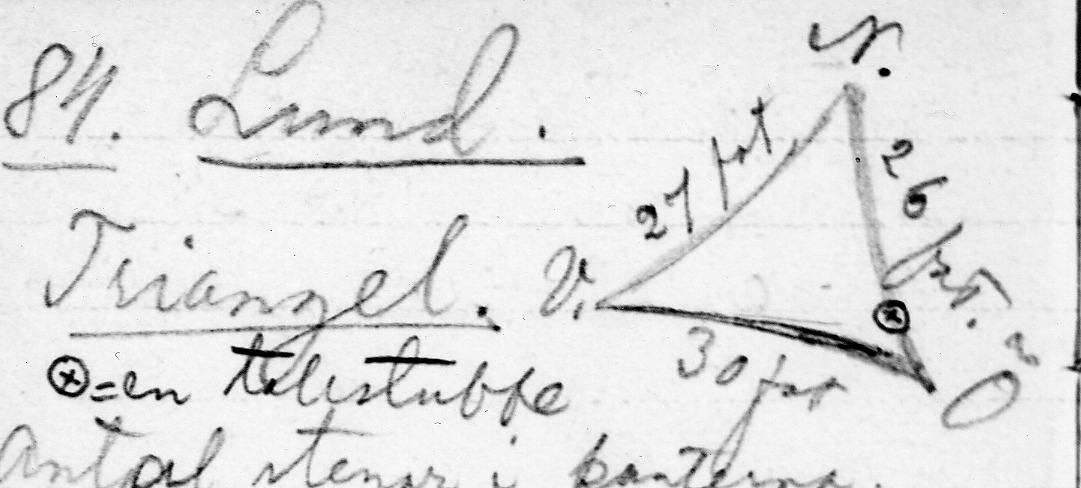 84. Lund.
N.
27 fot.
26 fot.
Triangel.
V.
30 fot
Ö
⊗ = en telestubbe
Antal stenar i kanterna.